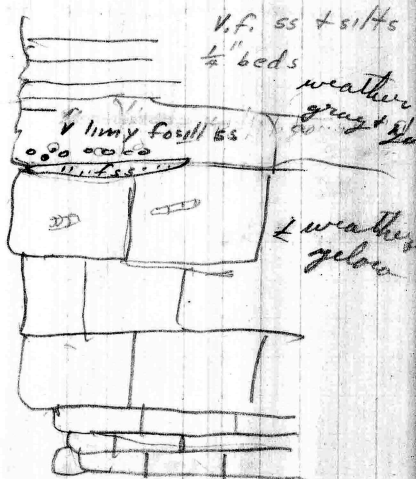 v.f. ss + silts
1/4" beds
weather
gray +
v limy fossil ss
f ss
weather
yelow